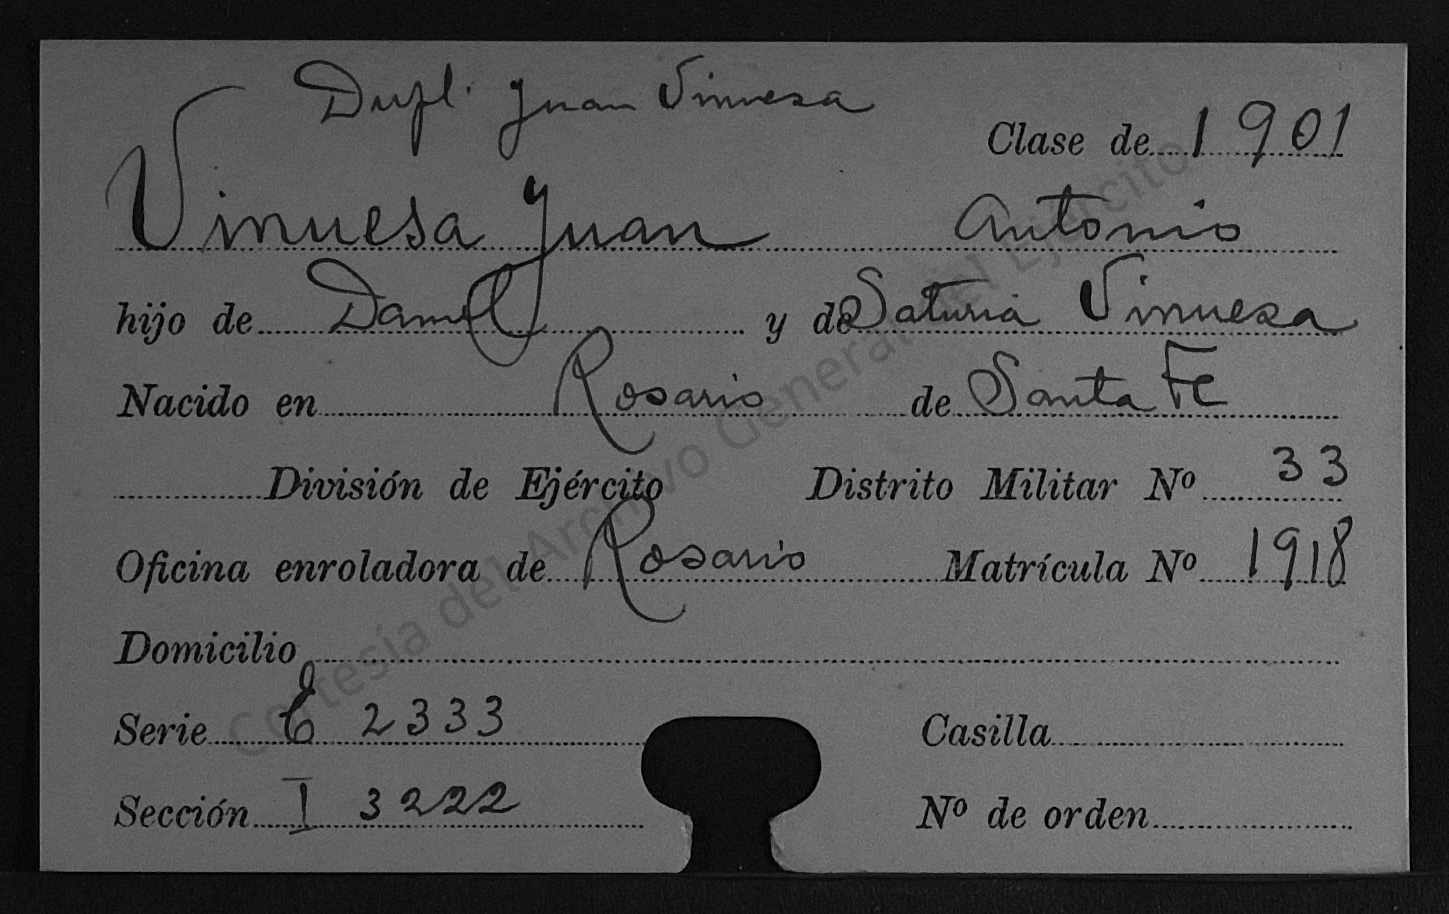 Dupl. Juan Vinuesa
Clase de 1901
Vinuesa Juan Antonio
hijo de Daniel y de Saturia Vinuesa
Nacido en Rosario de Santa Fe
División de Ejército Distrito Militar Nº 33
Oficina enroladora de Rosario Matrícula Nº 1918
Domicilio
Serie 2333 Casilla
Sección I 3222 Nº de orden
Cortesía del Archivo General del Ejército